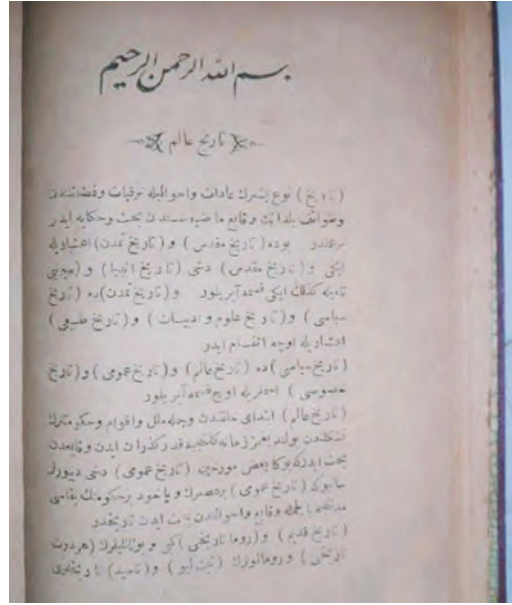 بسم الله الرحمن الرحيم
تاريخ عالم
(تاريخ) نوع بشرك عادات واحواليله ترقيات وفضائلندن
وطوائف بلدانك وقايع ماضيه سندن بحث وحكايه ايدر
بوده (تاريخ مقدس) و(تاريخ تمدن) اعتباريله
ايكى و(تاريخ مقدس) دخى (تاريخ انبيا) و
ناميه كذلك ايكى قسمه آيريلور و(تاريخ تمدن)ده (تاريخ
سياسى) و(تاريخ علوم وادبيات) و(تاريخ طبيعى)
اعتباريله اوچه انقسام ايدر
(تاريخ سياسى)ده (تاريخ عالم) و(تاريخ عمومى) و(تاريخ
خصوصى) اسمريله اوچ قسمه آيريلور
(تاريخ عالم) ابتداى خلقتدن وجمله ملل واقوام وحكومتلرك
زمانه كلنجيه قدر كذران ايدن وقايعدن
بحث ايدركه بوكا بعض مورخين (تاريخ عمومى) دخى ديورلر
حالبوكه (تاريخ عمومى) برعصرك وياخود برحكومتك
جمله وقايع واحوالندن بحث ايدن تاريخدر
(تاريخ قديم) و(روما تاريخى) كبى ويونانليلرك (هردوت
تاريخى) ورومالولرك (تيت ليو) و(تاسيد) تاريخلرى